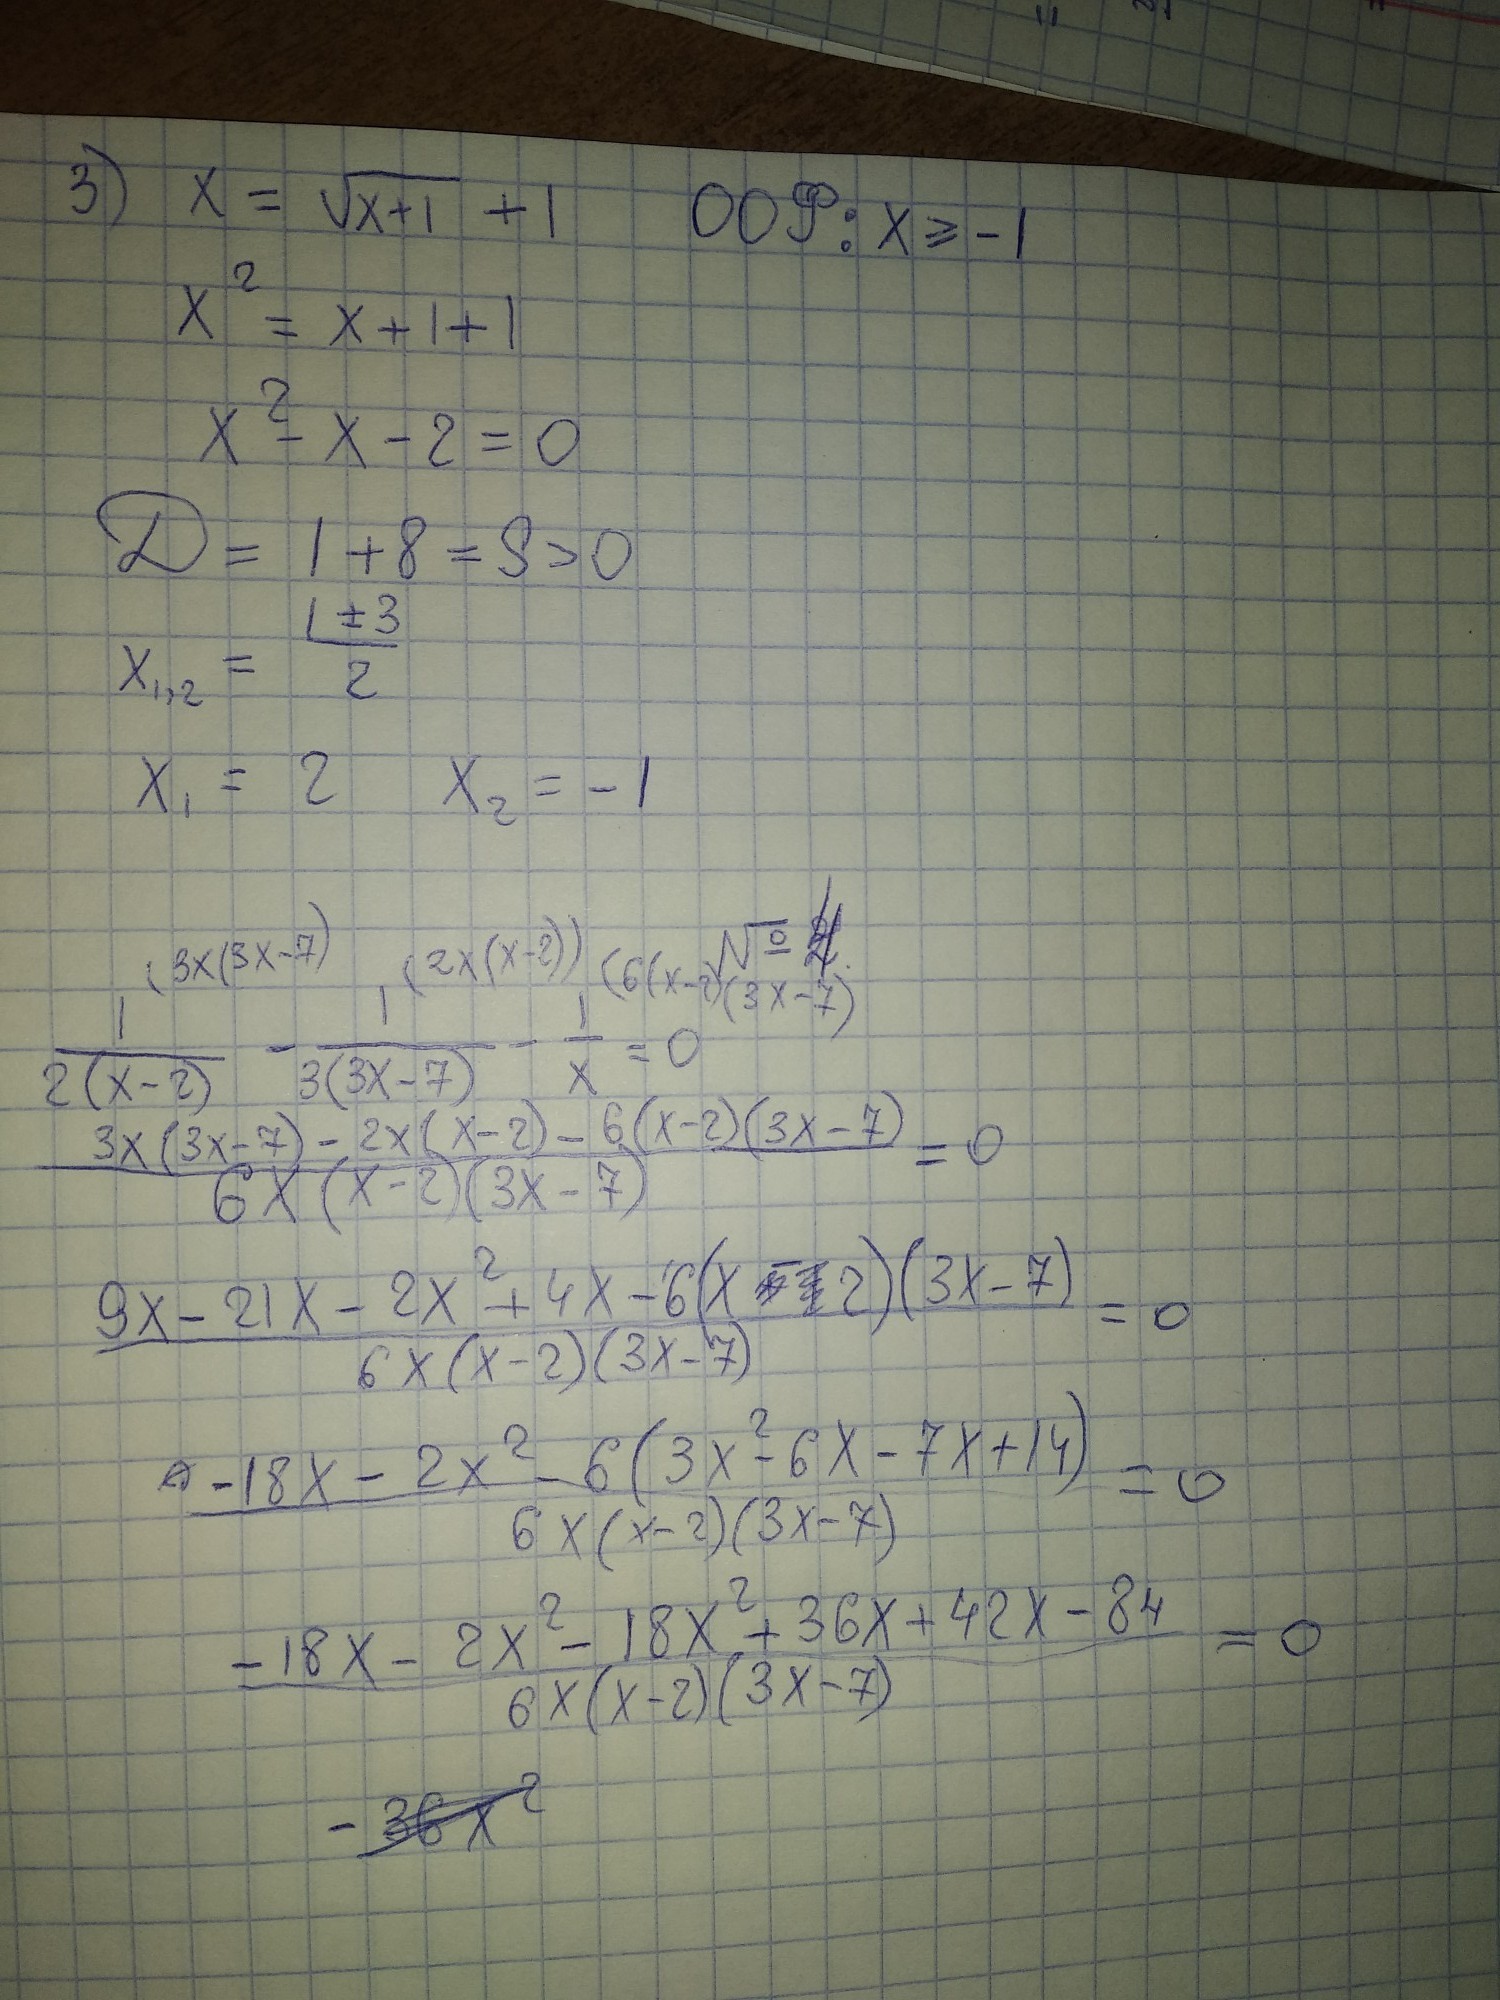 3) x = √(x+1) + 1 ООФ: x ≥ -1
x² = x+1+1
x² - x - 2 = 0
D = 1+8 = 9 > 0
x₁,₂ = (1±3)/2
x₁ = 2 x₂ = -1
(3x(3x-7) (2x(x-2)) (6(x-2)(3x-7)
1/(2(x-2)) - 1/(3(3x-7)) - 1/x = 0
(3x(3x-7) - 2x(x-2) - 6(x-2)(3x-7))/(6x(x-2)(3x-7)) = 0
(9x - 21x - 2x² + 4x - 6(x - 2)(3x-7))/(6x(x-2)(3x-7)) = 0
(-18x - 2x² - 6(3x² - 6x - 7x + 14))/(6x(x-2)(3x-7)) = 0
(-18x - 2x² - 18x² + 36x + 42x - 84)/(6x(x-2)(3x-7)) = 0
- 36x²